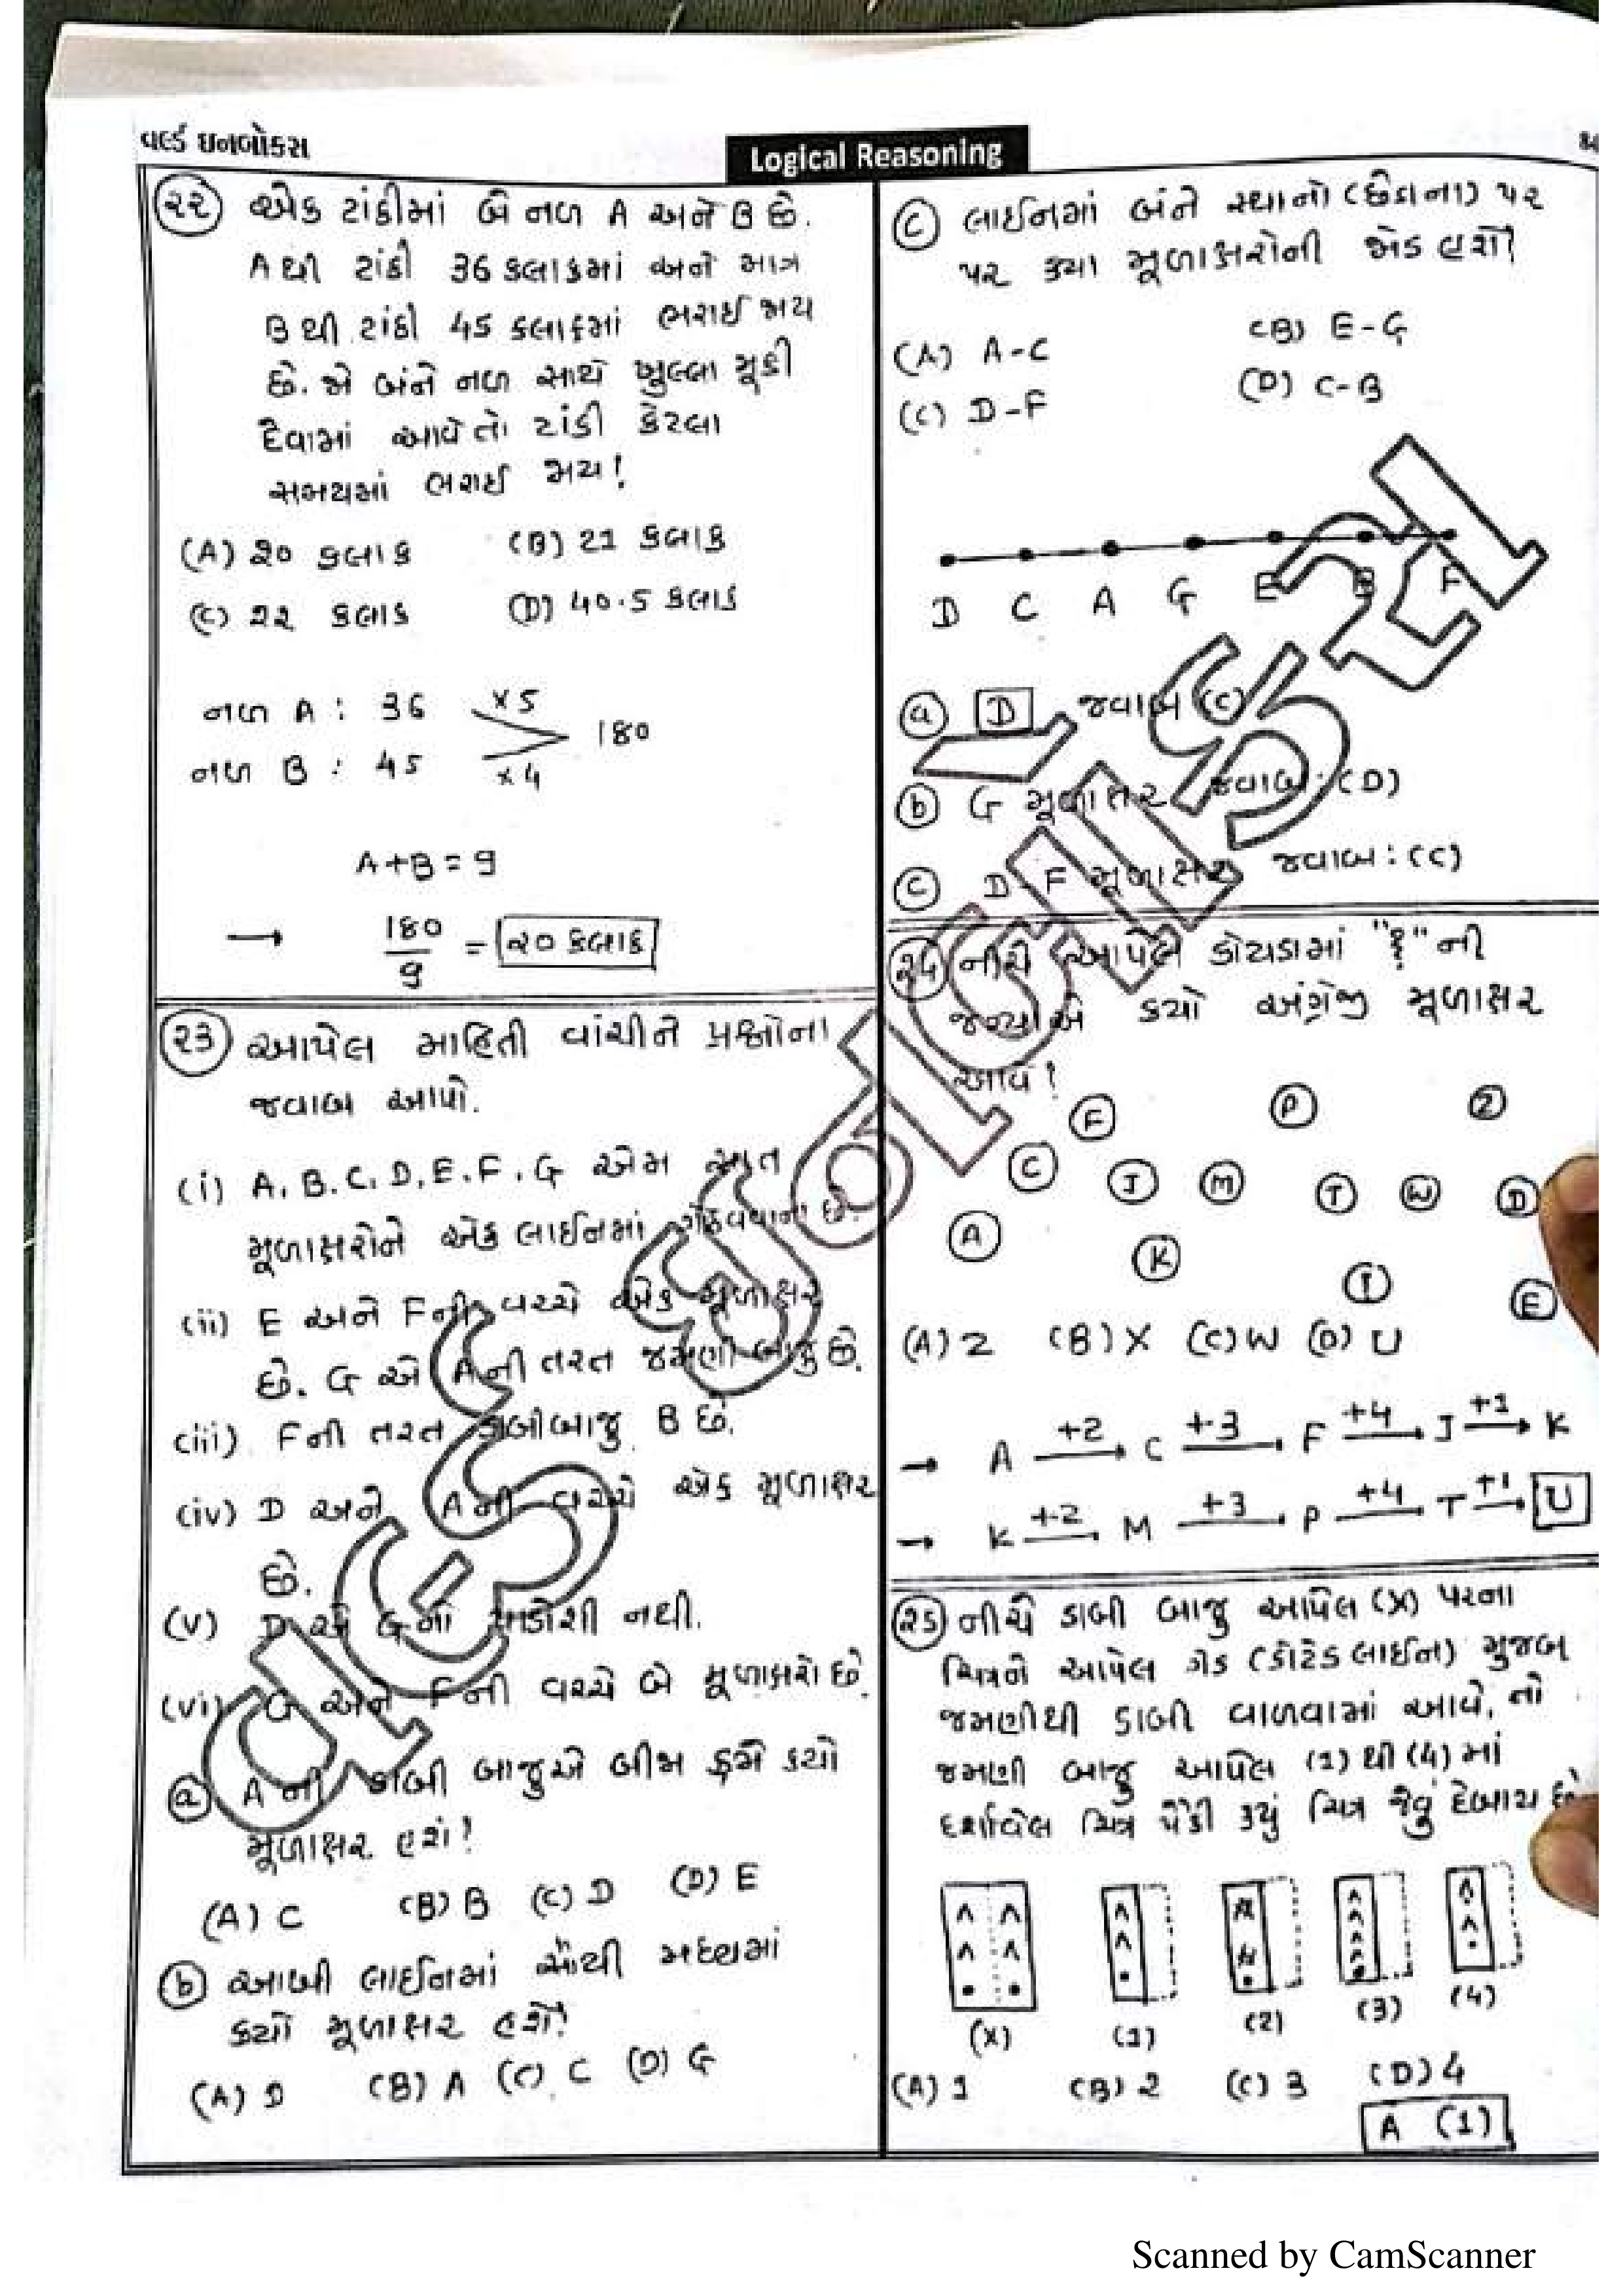 વર્લ્ડ ઇનબોક્સ
Logical Reasoning
૨૨ એક ટાંકીમાં બે નળ A અને B છે.
A થી ટાંકી 36 કલાકમાં અને માત્ર
B થી ટાંકી 45 કલાકમાં ભરાઈ જાય
છે. જો બંને નળ સાથે ખુલ્લા મૂકી
દેવામાં આવે તો ટાંકી કેટલા
સમયમાં ભરાઈ જાય?
(A) ૨૦ કલાક (B) 21 કલાક
(C) ૨૨ કલાક (D) 40.5 કલાક
નળ A : 36 ×5
180
નળ B : 45 ×4
A+B = 9
→ 180/9 = ૨૦ કલાક
૨૩ આપેલ માહિતી વાંચીને પ્રશ્નોના
જવાબ આપો.
(i) A, B, C, D, E, F, G એમ સાત
મૂળાક્ષરોને એક લાઈનમાં ગોઠવવાના છે.
(ii) E અને F ની વચ્ચે એક મૂળાક્ષર
છે. G એ A ની તરત જમણી બાજુ છે.
(iii) F ની તરત ડાબીબાજુ B છે.
(iv) D અને A ની વચ્ચે એક મૂળાક્ષર
છે.
(v) D એ G નો પાડોશી નથી.
(vi) G અને F ની વચ્ચે બે મૂળાક્ષરો છે.
(a) A ની ડાબી બાજુએ બીજા ક્રમે કયો
મૂળાક્ષર હશે?
(A) C (B) B (C) D (D) E
(b) આખી લાઈનમાં સૌથી મધ્યમાં
કયો મૂળાક્ષર હશે?
(A) D (B) A (C) C (D) G
(c) લાઈનમાં બંને સ્થાનો (છેડાના) પર
પર કયા મૂળાક્ષરોની જોડ હશે?
(A) A-C (B) E-G
(C) D-F (D) C-B
D C A G E B F
(a) D જવાબ (C)
(b) G મૂળાક્ષર જવાબ : (D)
(c) D-F મૂળાક્ષર જવાબ : (C)
૨૪ નીચે આપેલ કોયડામાં "?" ની
જગ્યાએ કયો અંગ્રેજી મૂળાક્ષર
આવે?
F P Z
C J M T W D
A K ? E
(A) Z (B) X (C) W (D) U
→ A +2→ C +3→ F +4→ J +1→ K
→ K +2→ M +3→ P +4→ T +1→ U
૨૫ નીચે ડાબી બાજુ આપેલ (X) પરના
ચિત્રને આપેલ ગેડ (ડોટેડ લાઈન) મુજબ
જમણીથી ડાબી વાળવામાં આવે, તો
જમણી બાજુ આપેલ (1) થી (4) માં
દર્શાવેલ ચિત્ર પૈકી કયું ચિત્ર જેવું દેખાય છે
(X) (1) (2) (3) (4)
(A) 1 (B) 2 (C) 3 (D) 4
A (1)
Scanned by CamScanner